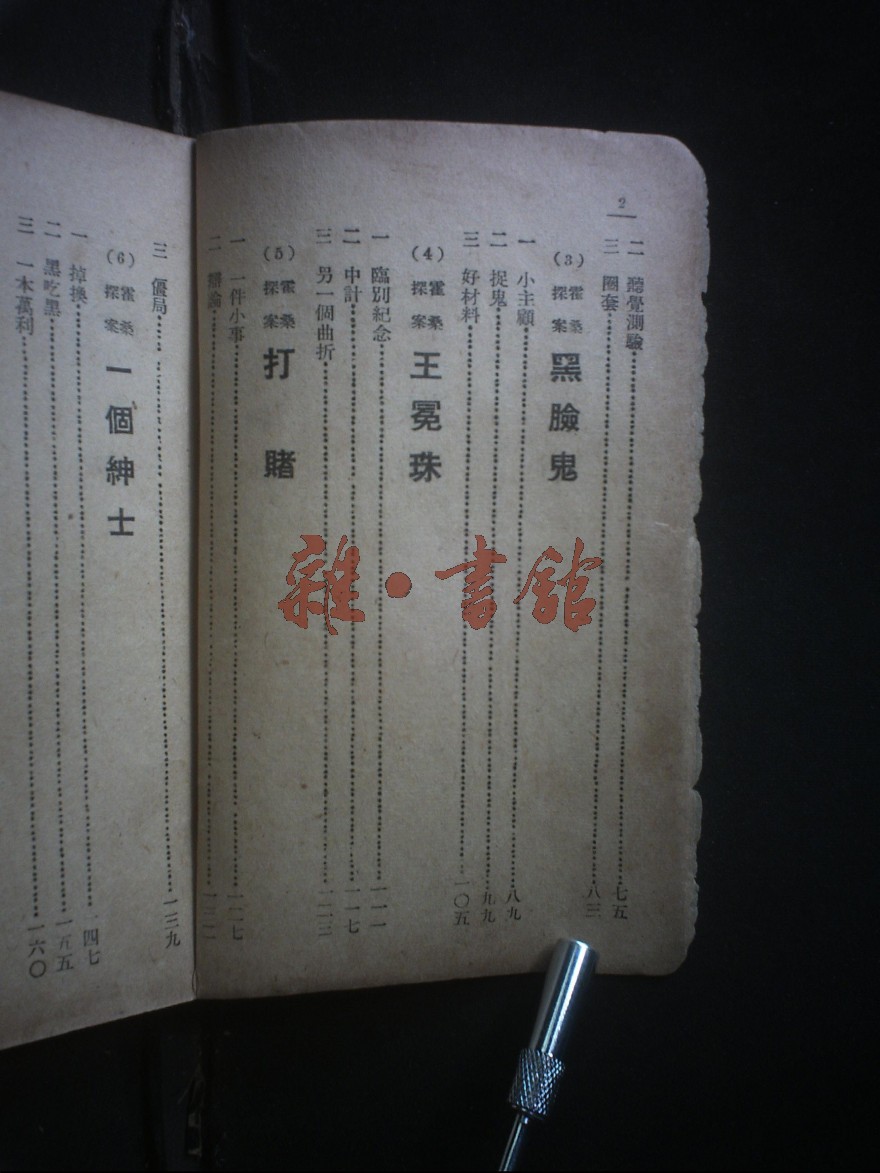 2
二 聽覺測驗……七五
三 圈套……八三
(3) 霍桑探案 黑臉鬼
一 小主顧……八九
二 捉鬼……九九
三 好材料……一〇五
(4) 霍桑探案 王冕珠
一 臨別紀念……一一一
二 中計……一一七
三 另一個曲折……一二三
(5) 霍桑探案 打賭
一 一件小事……一二七
二 辯論……一三一
三 僵局……一三九
(6) 霍桑探案 一個紳士
一 掉換……一四七
二 黑吃黑……一五五
三 一本萬利……一六〇
雜·書館